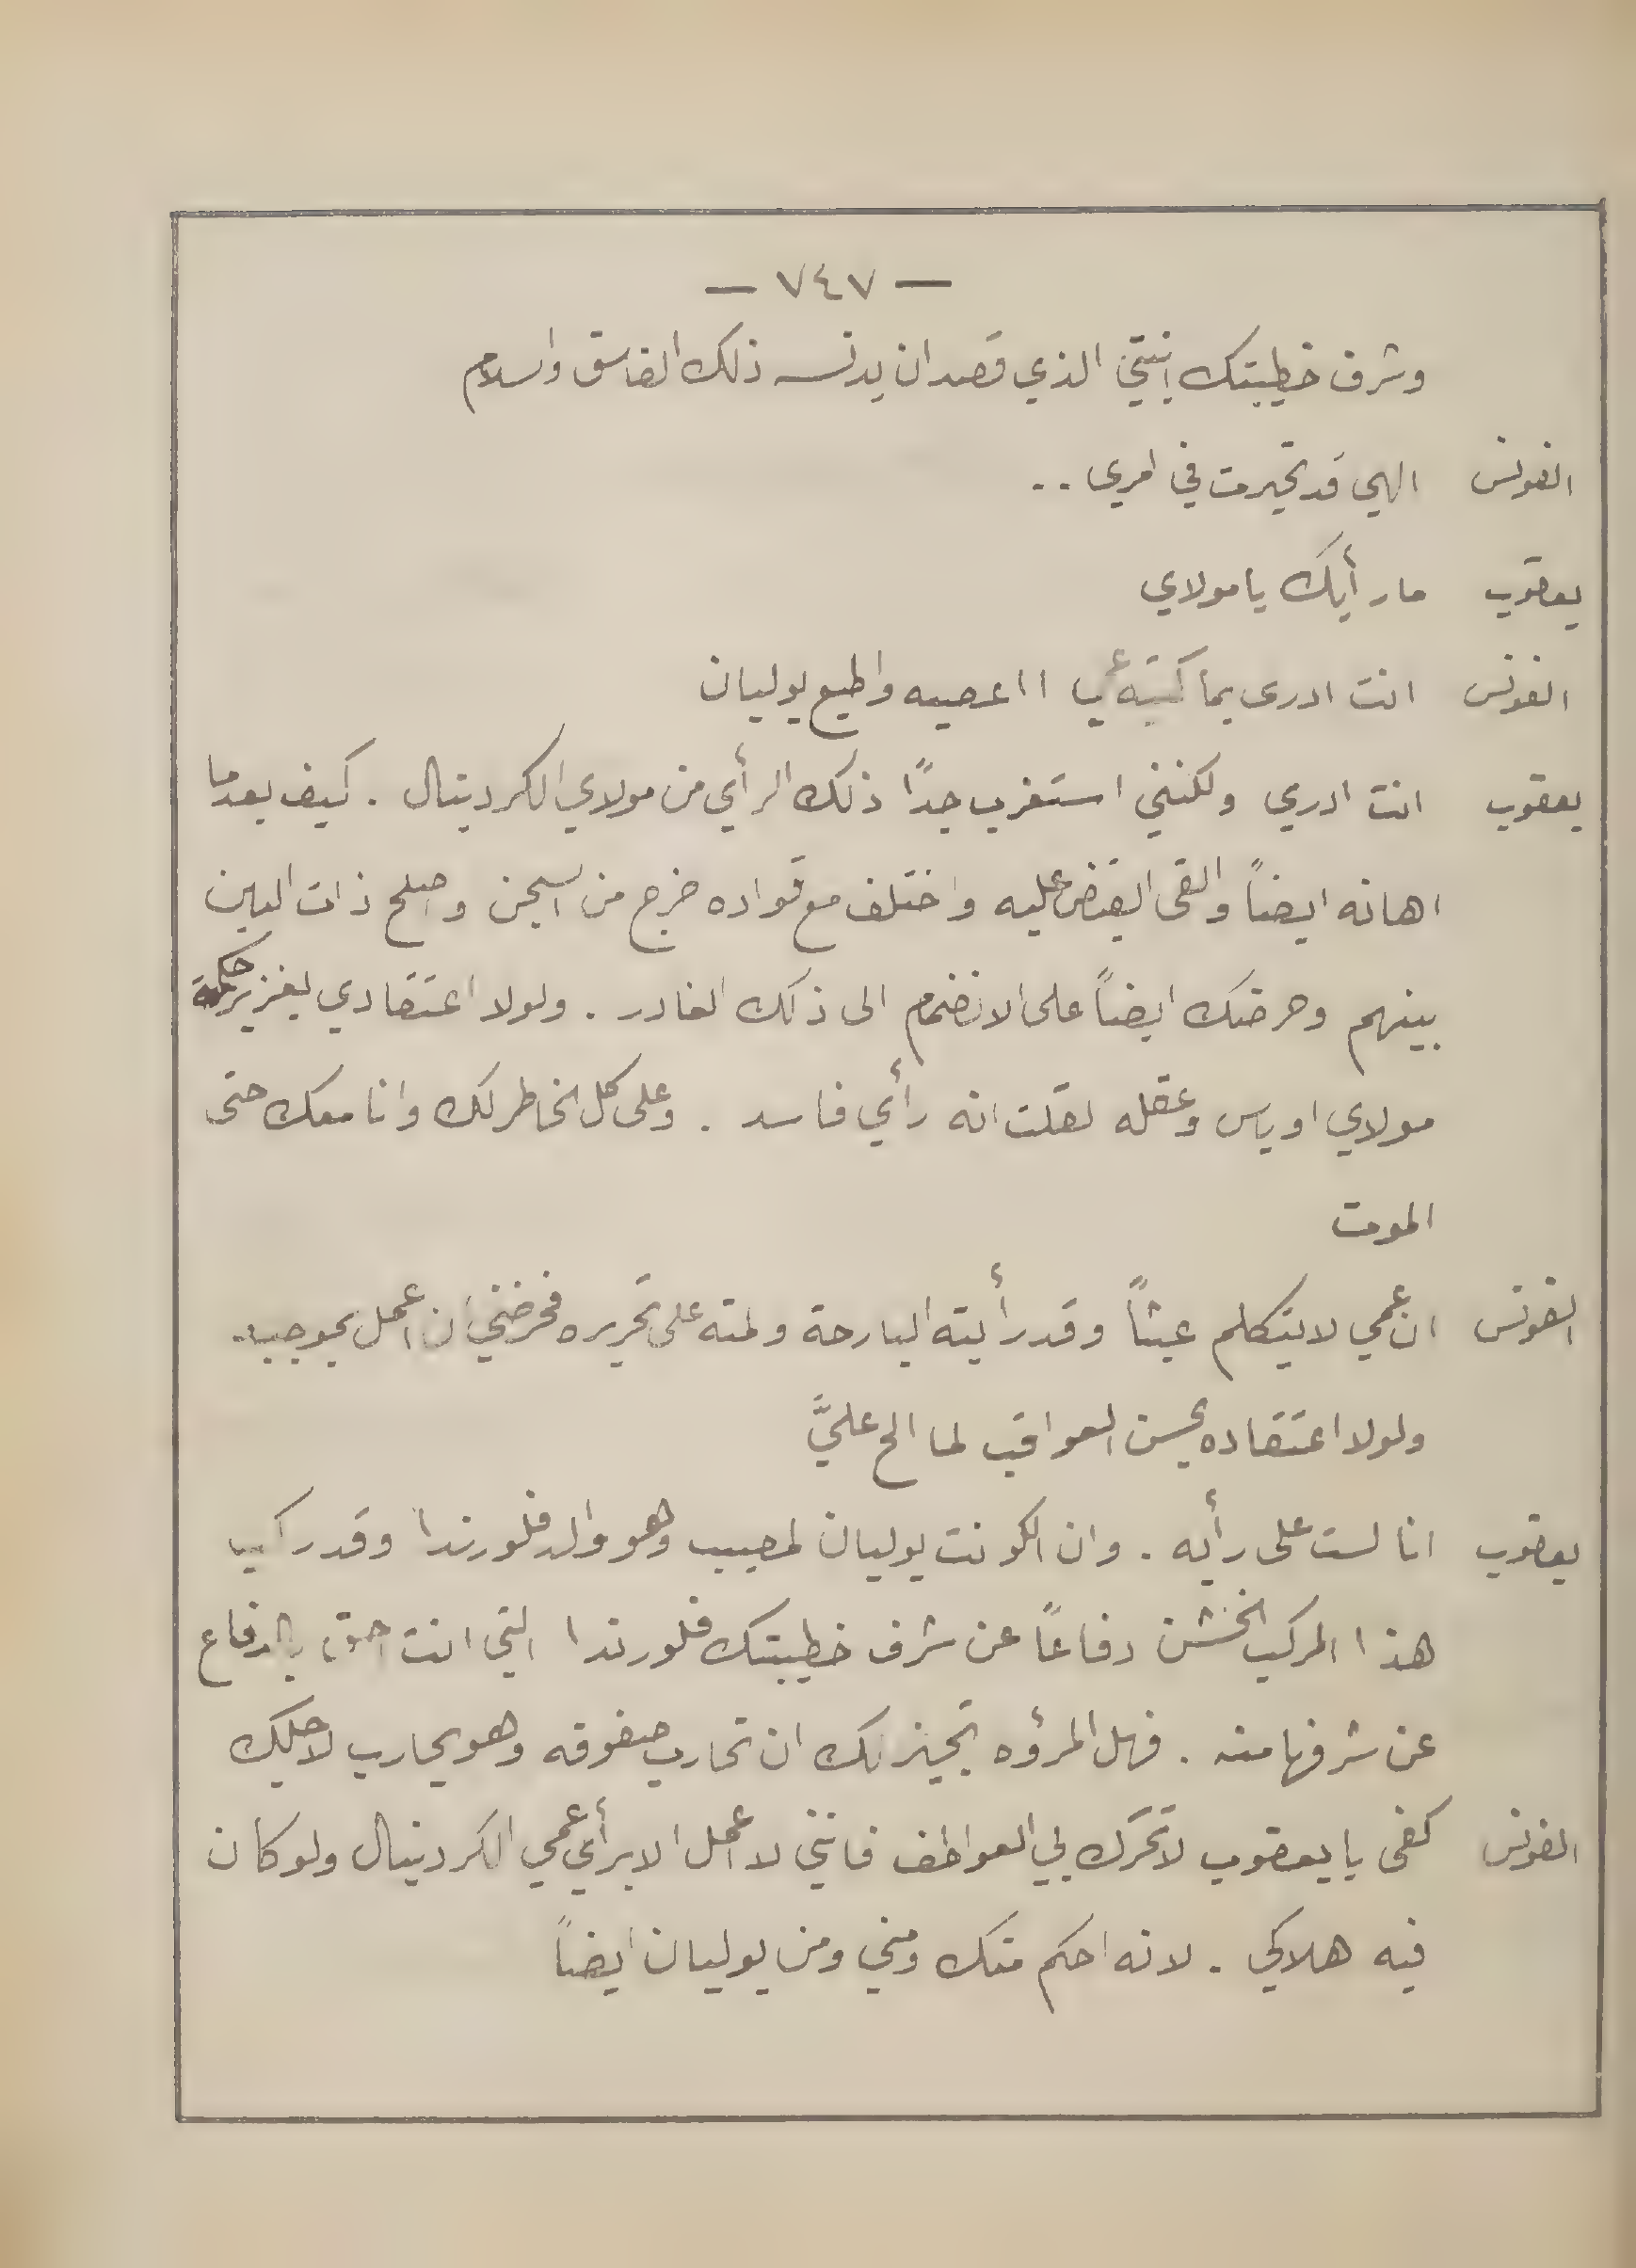 — ٧٤٧ —
وشرف خطيبتك إبنتي الذي قصد ان يدنسه ذلك الفاسق والسلام
الفونس الهي قد تحيرت في امري ..
يعقوب ما رأيك يا مولاي
الفونس انت ادرى بما كتبه عمي ااعصيه واطيع يوليان
يعقوب انت ادري ولكنني استغرب جداً ذلك الرأي من مولاي الكردينال . كيف بعد ما
اهانه ايضاً والقى القبض عليه واختلف مع قواده خرج من السجن واصلح ذات البين
بينهم وحرضك ايضاً على الانضمام الى ذلك الغادر . ولولا اعتقادي بغزير حكمة
مولاي اوباس وعقله لقلت انه رأي فاسد . وعلى كل الخاطر لك وانا معك حتى
الموت
الفونس ان عمي لا يتكلم عبثاً وقد رأيته البارحة ولمته على تحريره فحرضني ان اعمل بموجبه
ولولا اعتقاده بحسن العواقب لما الح عليَّ
يعقوب انا لست على رأيه . وان الكونت يوليان لمصيب وهو والد فلورندا وقد ركب
هذا المركب الخشن دفاعاً عن شرف خطيبتك فلورندا التي انت احق بالدفاع
عن شرفها منه . فهل المرؤه تجيز لك ان تحارب صفوفه وهو يحارب لاجلك
الفونس كفى يا يعقوب لا تحرك بي العواطف فانني لا اعمل الا برأي عمي الكردينال ولو كان
فيه هلاكي . لانه احكم منك ومني ومن يوليان ايضاً